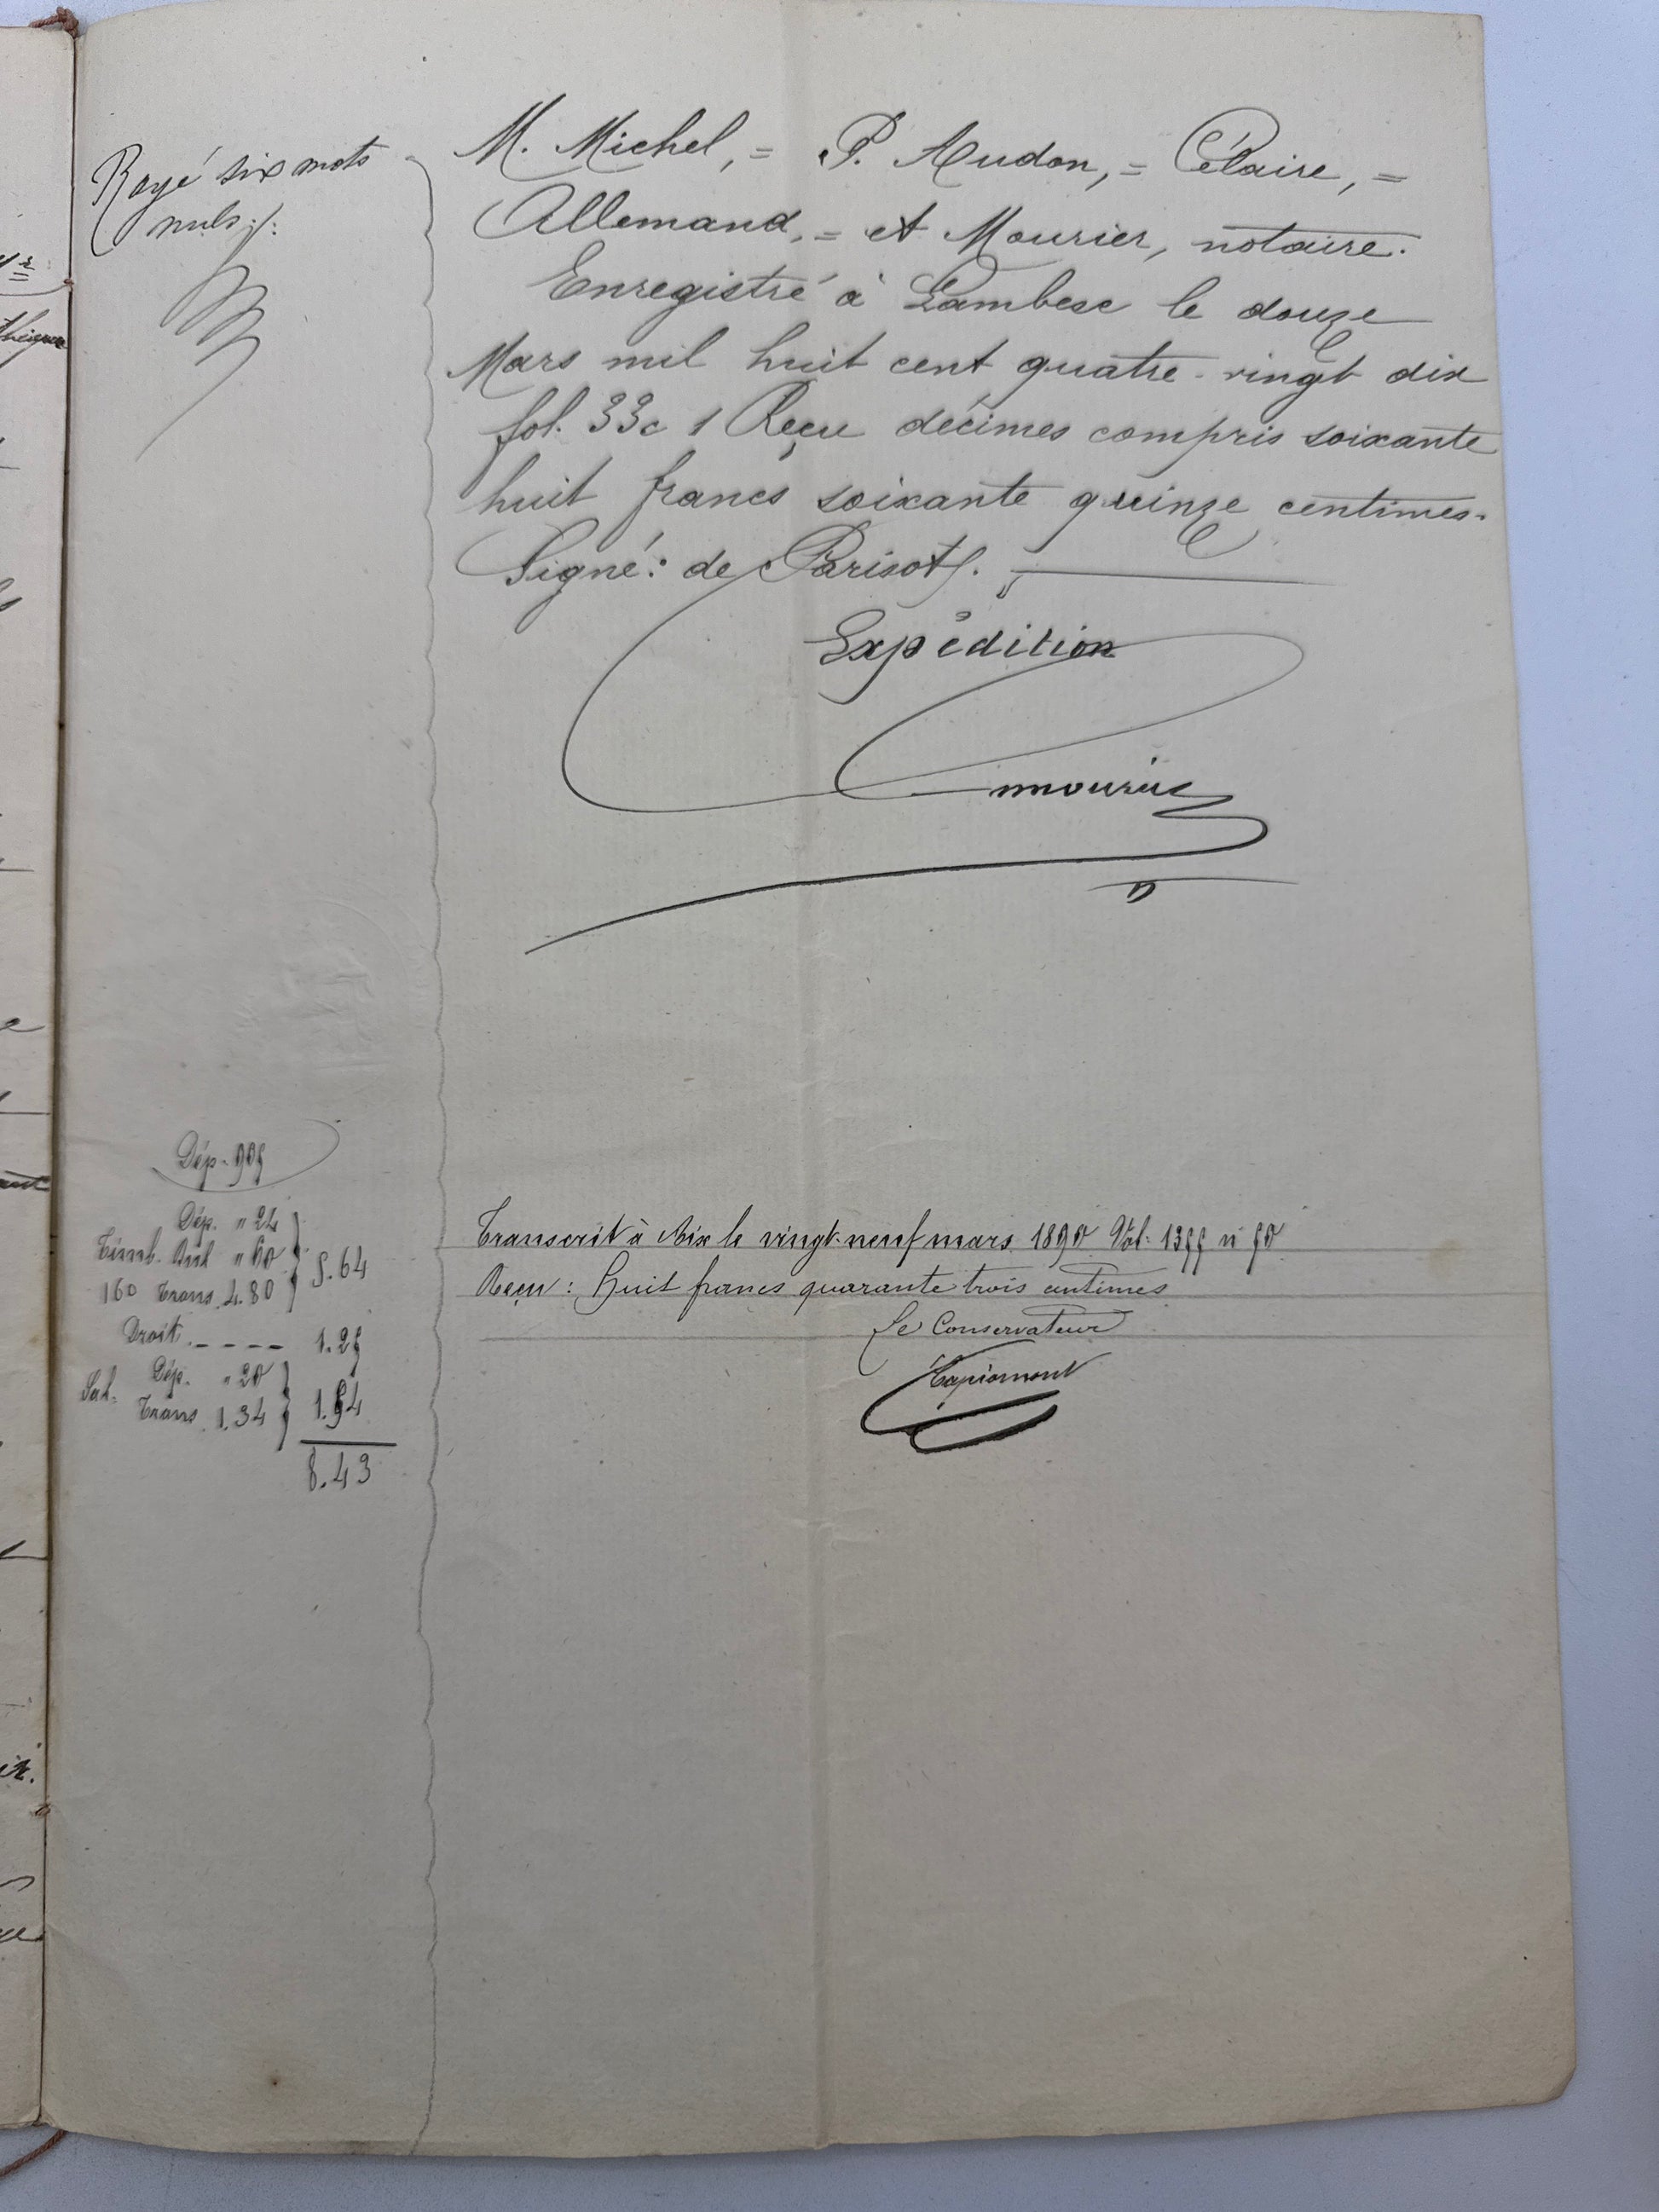 Rayé six mots
nuls ./:
M. Michel, = P. Audon, = Célaire, =
Allemand, = et Mourier, notaire.
Enregistré à Lambesc le douze
Mars mil huit cent quatre-vingt dix
fol. 33 c 1 Reçu décimes compris soixante
huit francs soixante quinze centimes.
Signé: de Parisot ./.
Expédition
Mourier
Dép.
Dép. " 24
Timb. " 60
5.64
160 Trans. 4.80
Droit. - - - - 1.25
Sal. Dép. " 20
1.54
Trans 1.34
8.43
Transcrit à Aix le vingt-neuf mars 1890 Vol.
Reçu : Huit francs quarante trois centimes
Le Conservateur